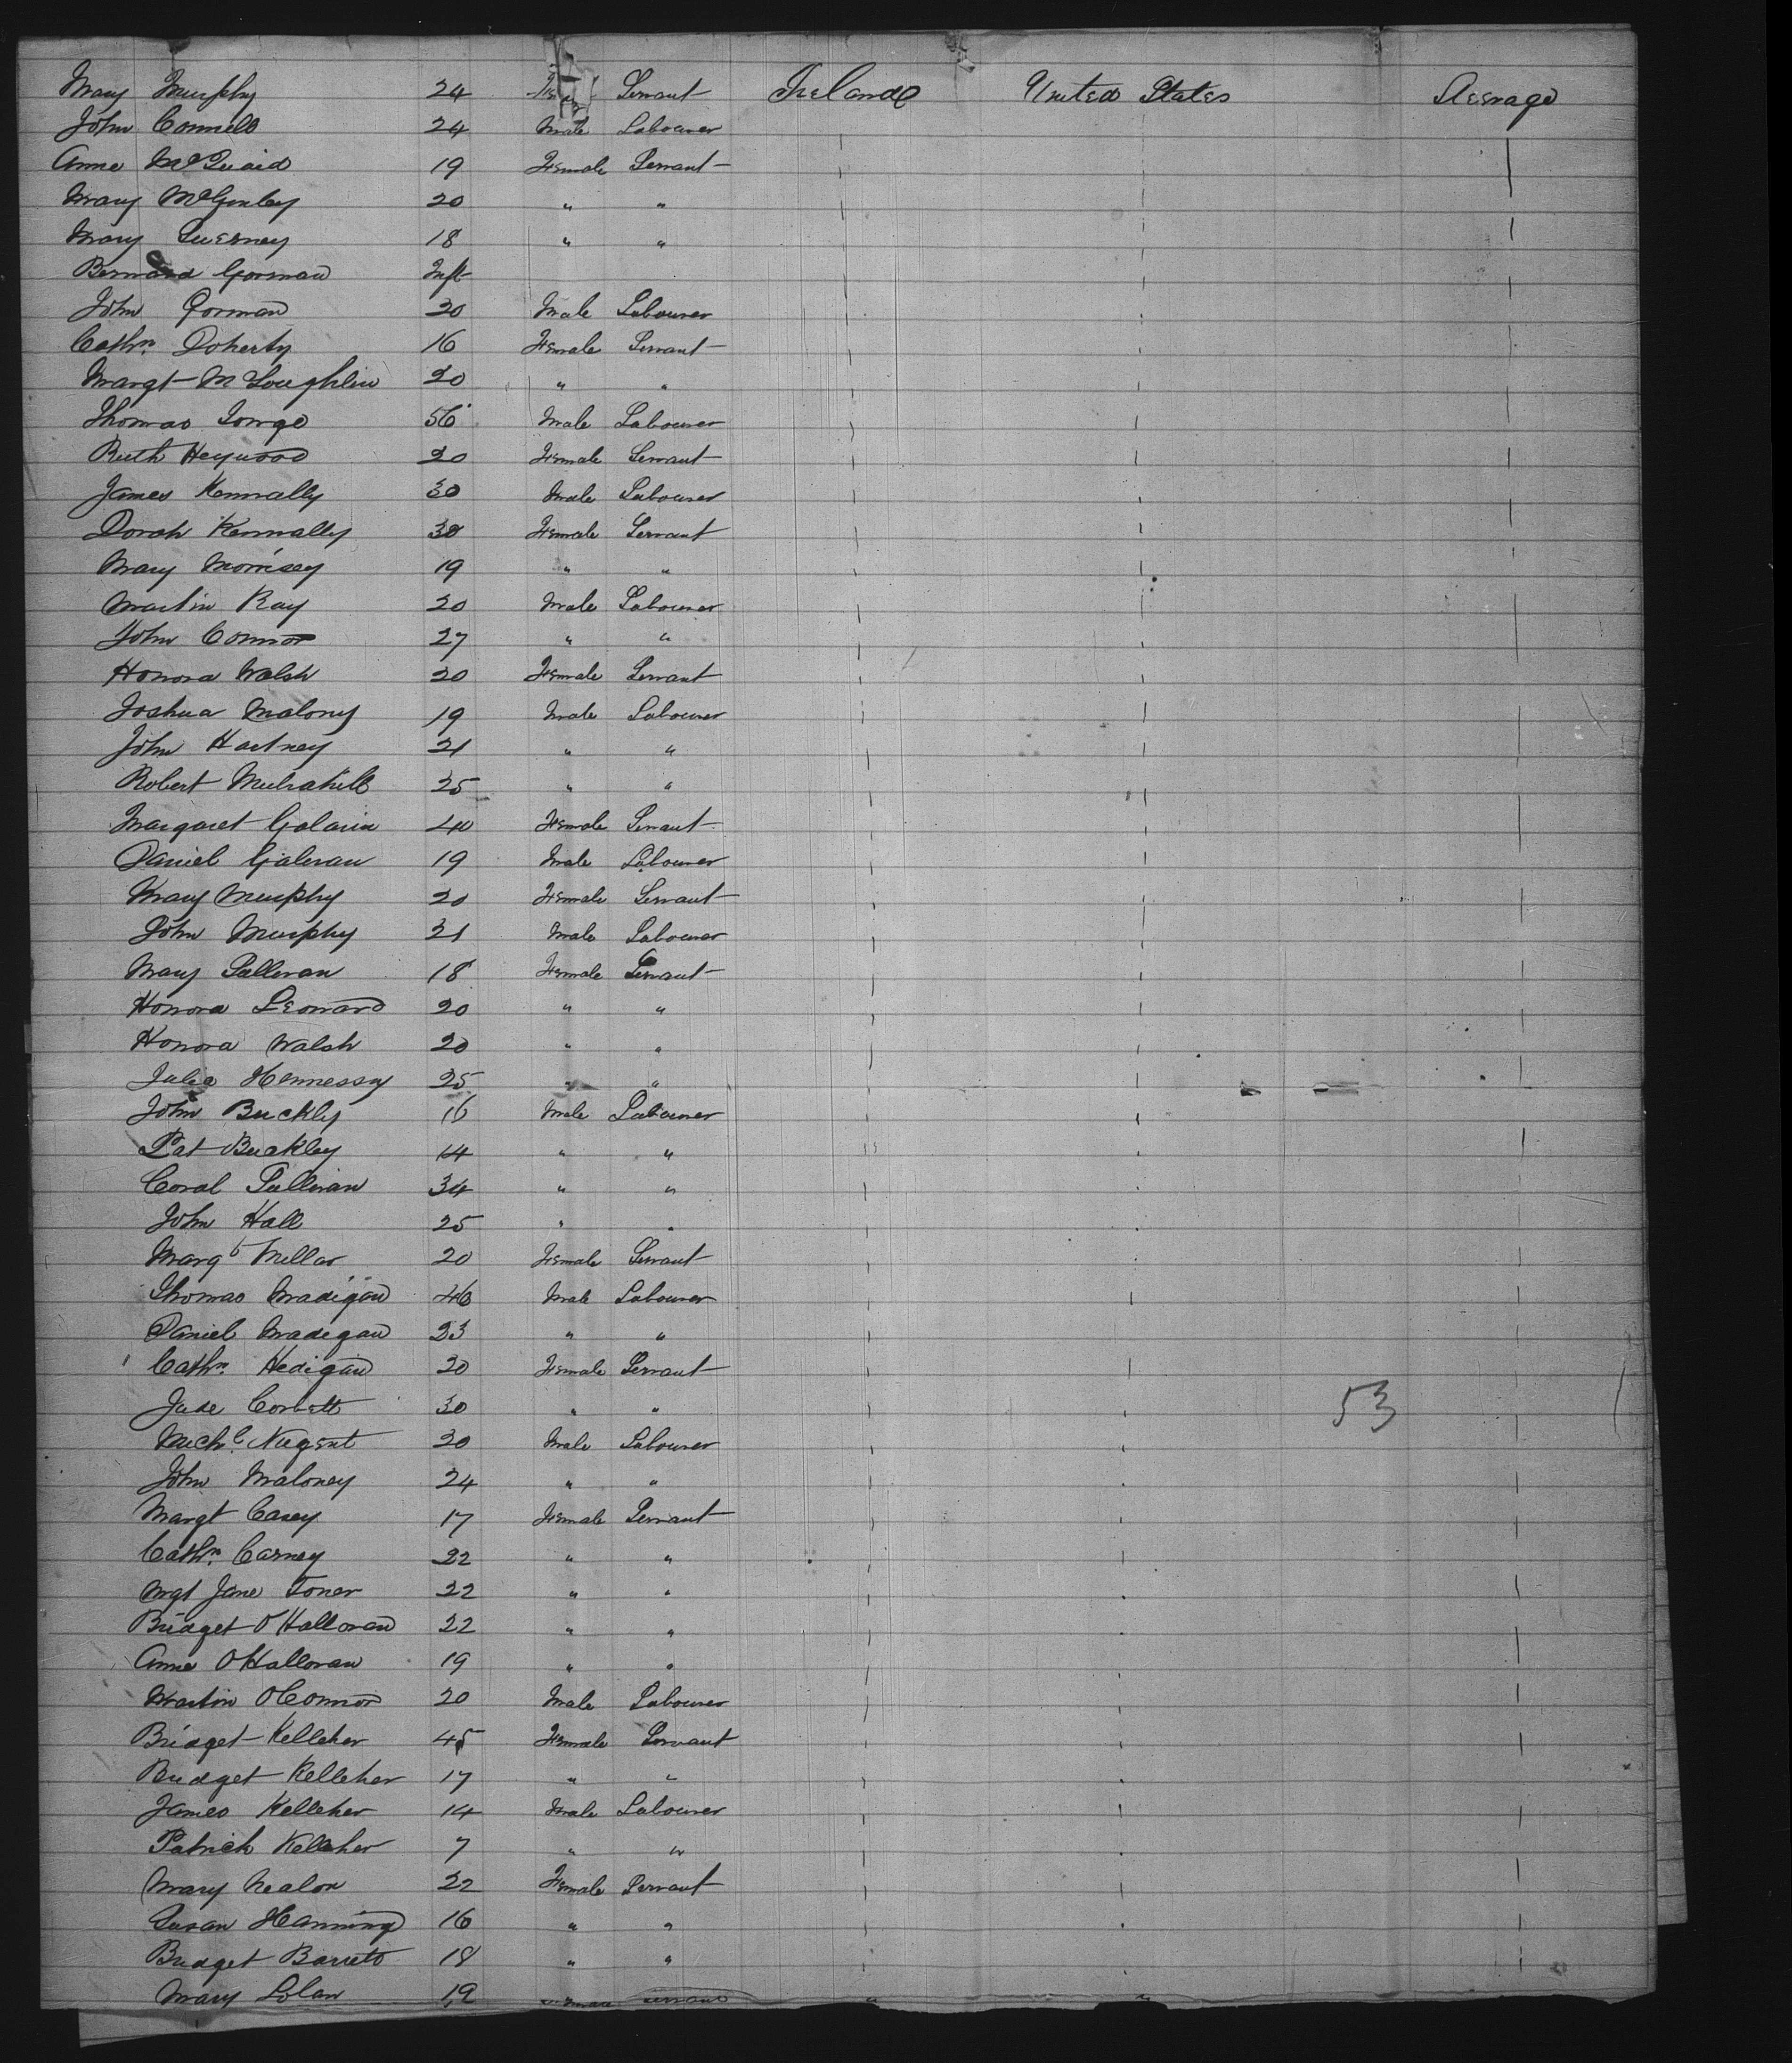 Mary Murphy 24 Servant Ireland United States Steerage
John Connell 24 Male Labourer
Anne McQuaid 19 Female Servant
Mary McGinley 20 " "
Mary 18 " "
Bernard Gorman Inft
John Gorman 20 Male Labourer
Cathn. Doherty 16 Female Servant
Margt McLoughlin 20 " "
Thomas 56 Male Labourer
Ruth Heywood 20 Female Servant
James Kennally 30 Male Labourer
Dorah Kennally 30 Female Servant
Mary Morrisey 19 " "
Martin Ray 20 Male Labourer
John Connor 27 " "
Honora Walsh 20 Female Servant
Joshua Malony 19 Male Labourer
John Hartney 21 " "
Robert 25 " "
Margaret 40 Female Servant
Daniel 19 Male Labourer
Mary Murphy 20 Female Servant
John Murphy 21 Male Labourer
Mary Sullivan 18 Female Servant
Honora Leonard 20 " "
Honora Walsh 20 " "
Julia Hennessy 25 " "
John Buckly 16 Male Labourer
Pat Buckley 14 " "
Sullivan 34 " "
John Hall 25 " "
Margt Millar 20 Female Servant
Thomas Madigan 46 Male Labourer
Daniel Madigan 23 " "
Cathn. Hedigan 20 Female Servant
Jude Corbett 30 " " 53
Michl. Nugent 20 Male Labourer
John Maloney 24 " "
Margt Casey 17 Female Servant
Cathn. Carney 22 " "
Mgt Jane Toner 22 " "
Bridget O'Halloran 22 " "
Anne O'Halloran 19 " "
Martin O'Connor 20 Male Labourer
Bridget Kelleher 45 Female Servant
Bridget Kelleher 17 " "
James Kelleher 14 Male Labourer
Patrick Kelleher 7 " "
Mary Nealon 22 Female Servant
Susan Hanning 16 " "
Bridget Barrett 18 " "
Mary 19 Female Servant " "